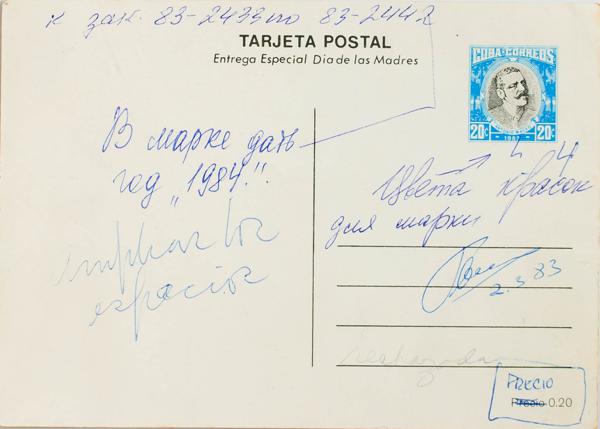 к зак. 83-2433 по 83-2442
TARJETA POSTAL
Entrega Especial Dia de las Madres
CUBA CORREOS
20c 1982 20c
В марке дать
год "1984".
Цвета красок
для марки
ampliar los
espacios
2.3.83
PRECIO
Precio 0.20